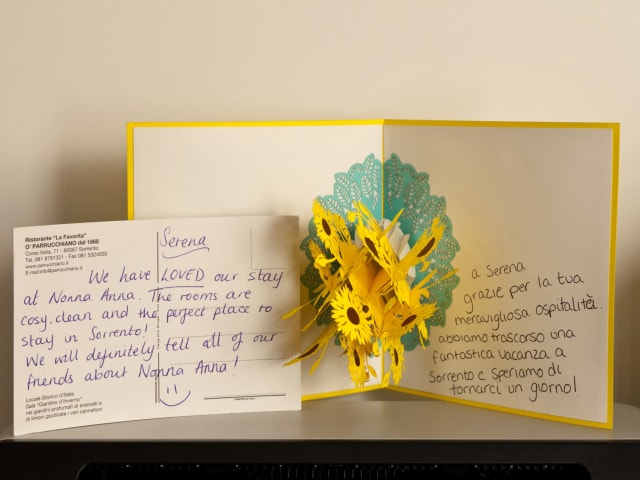 Ristorante "La Favorita"
O' PARRUCCHIANO dal 1868
Corso Italia, 71 - 80067 Sorrento
Tel. 081 8781321 - Fax 081 5324035
www.parrucchiano.it
E-mail:info@parrucchiano.it
Serena
We have LOVED our stay
at Nonna Anna. The rooms are
cosy, clean and the perfect place to
stay in Sorrento!
We will definitely tell all of our
friends about Nonna Anna!
Locale Storico d'Italia
Sala "Giardino d'Inverno"
nei giardini profumati di aranceti e
di limoni giudicate i veri cannelloni
a Serena
grazie per la tua
meravigliosa ospitalità.
abbiamo trascorso una
fantastica vacanza a
Sorrento e speriamo di
tornarci un giorno!